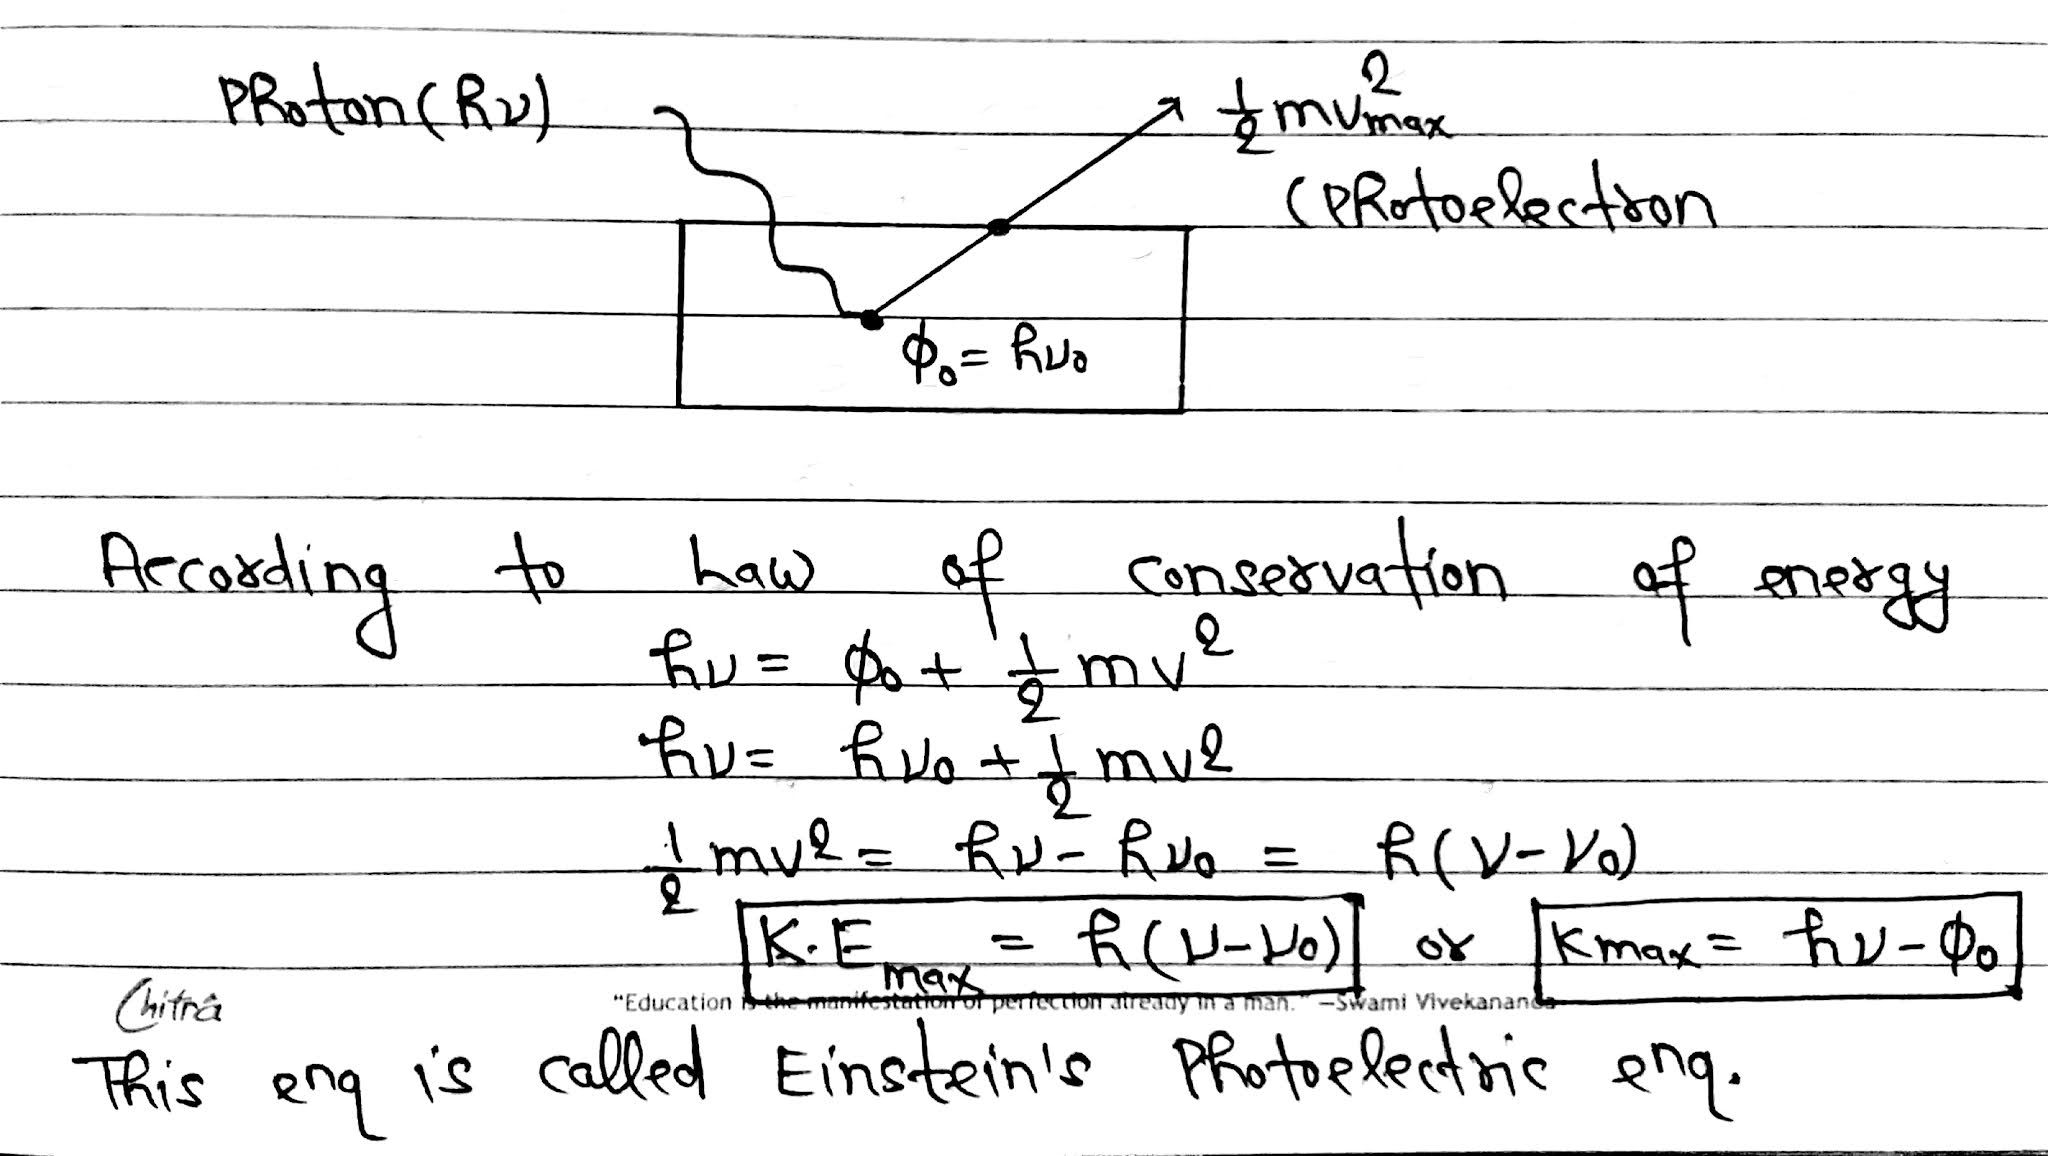 Photon (hν)
½mv²max
(Photoelectron
ϕ₀ = hν₀
According to Law of conservation of energy
hν = ϕ₀ + ½ mv²
hν = hν₀ + ½ mv²
½ mv² = hν - hν₀ = h(ν-ν₀)
K.E max = h(ν-ν₀) or Kmax = hν - ϕ₀
Chitra
"Education is the manifestation of perfection already in a man." —Swami Vivekananda
This enq is called Einstein's Photoelectric enq.